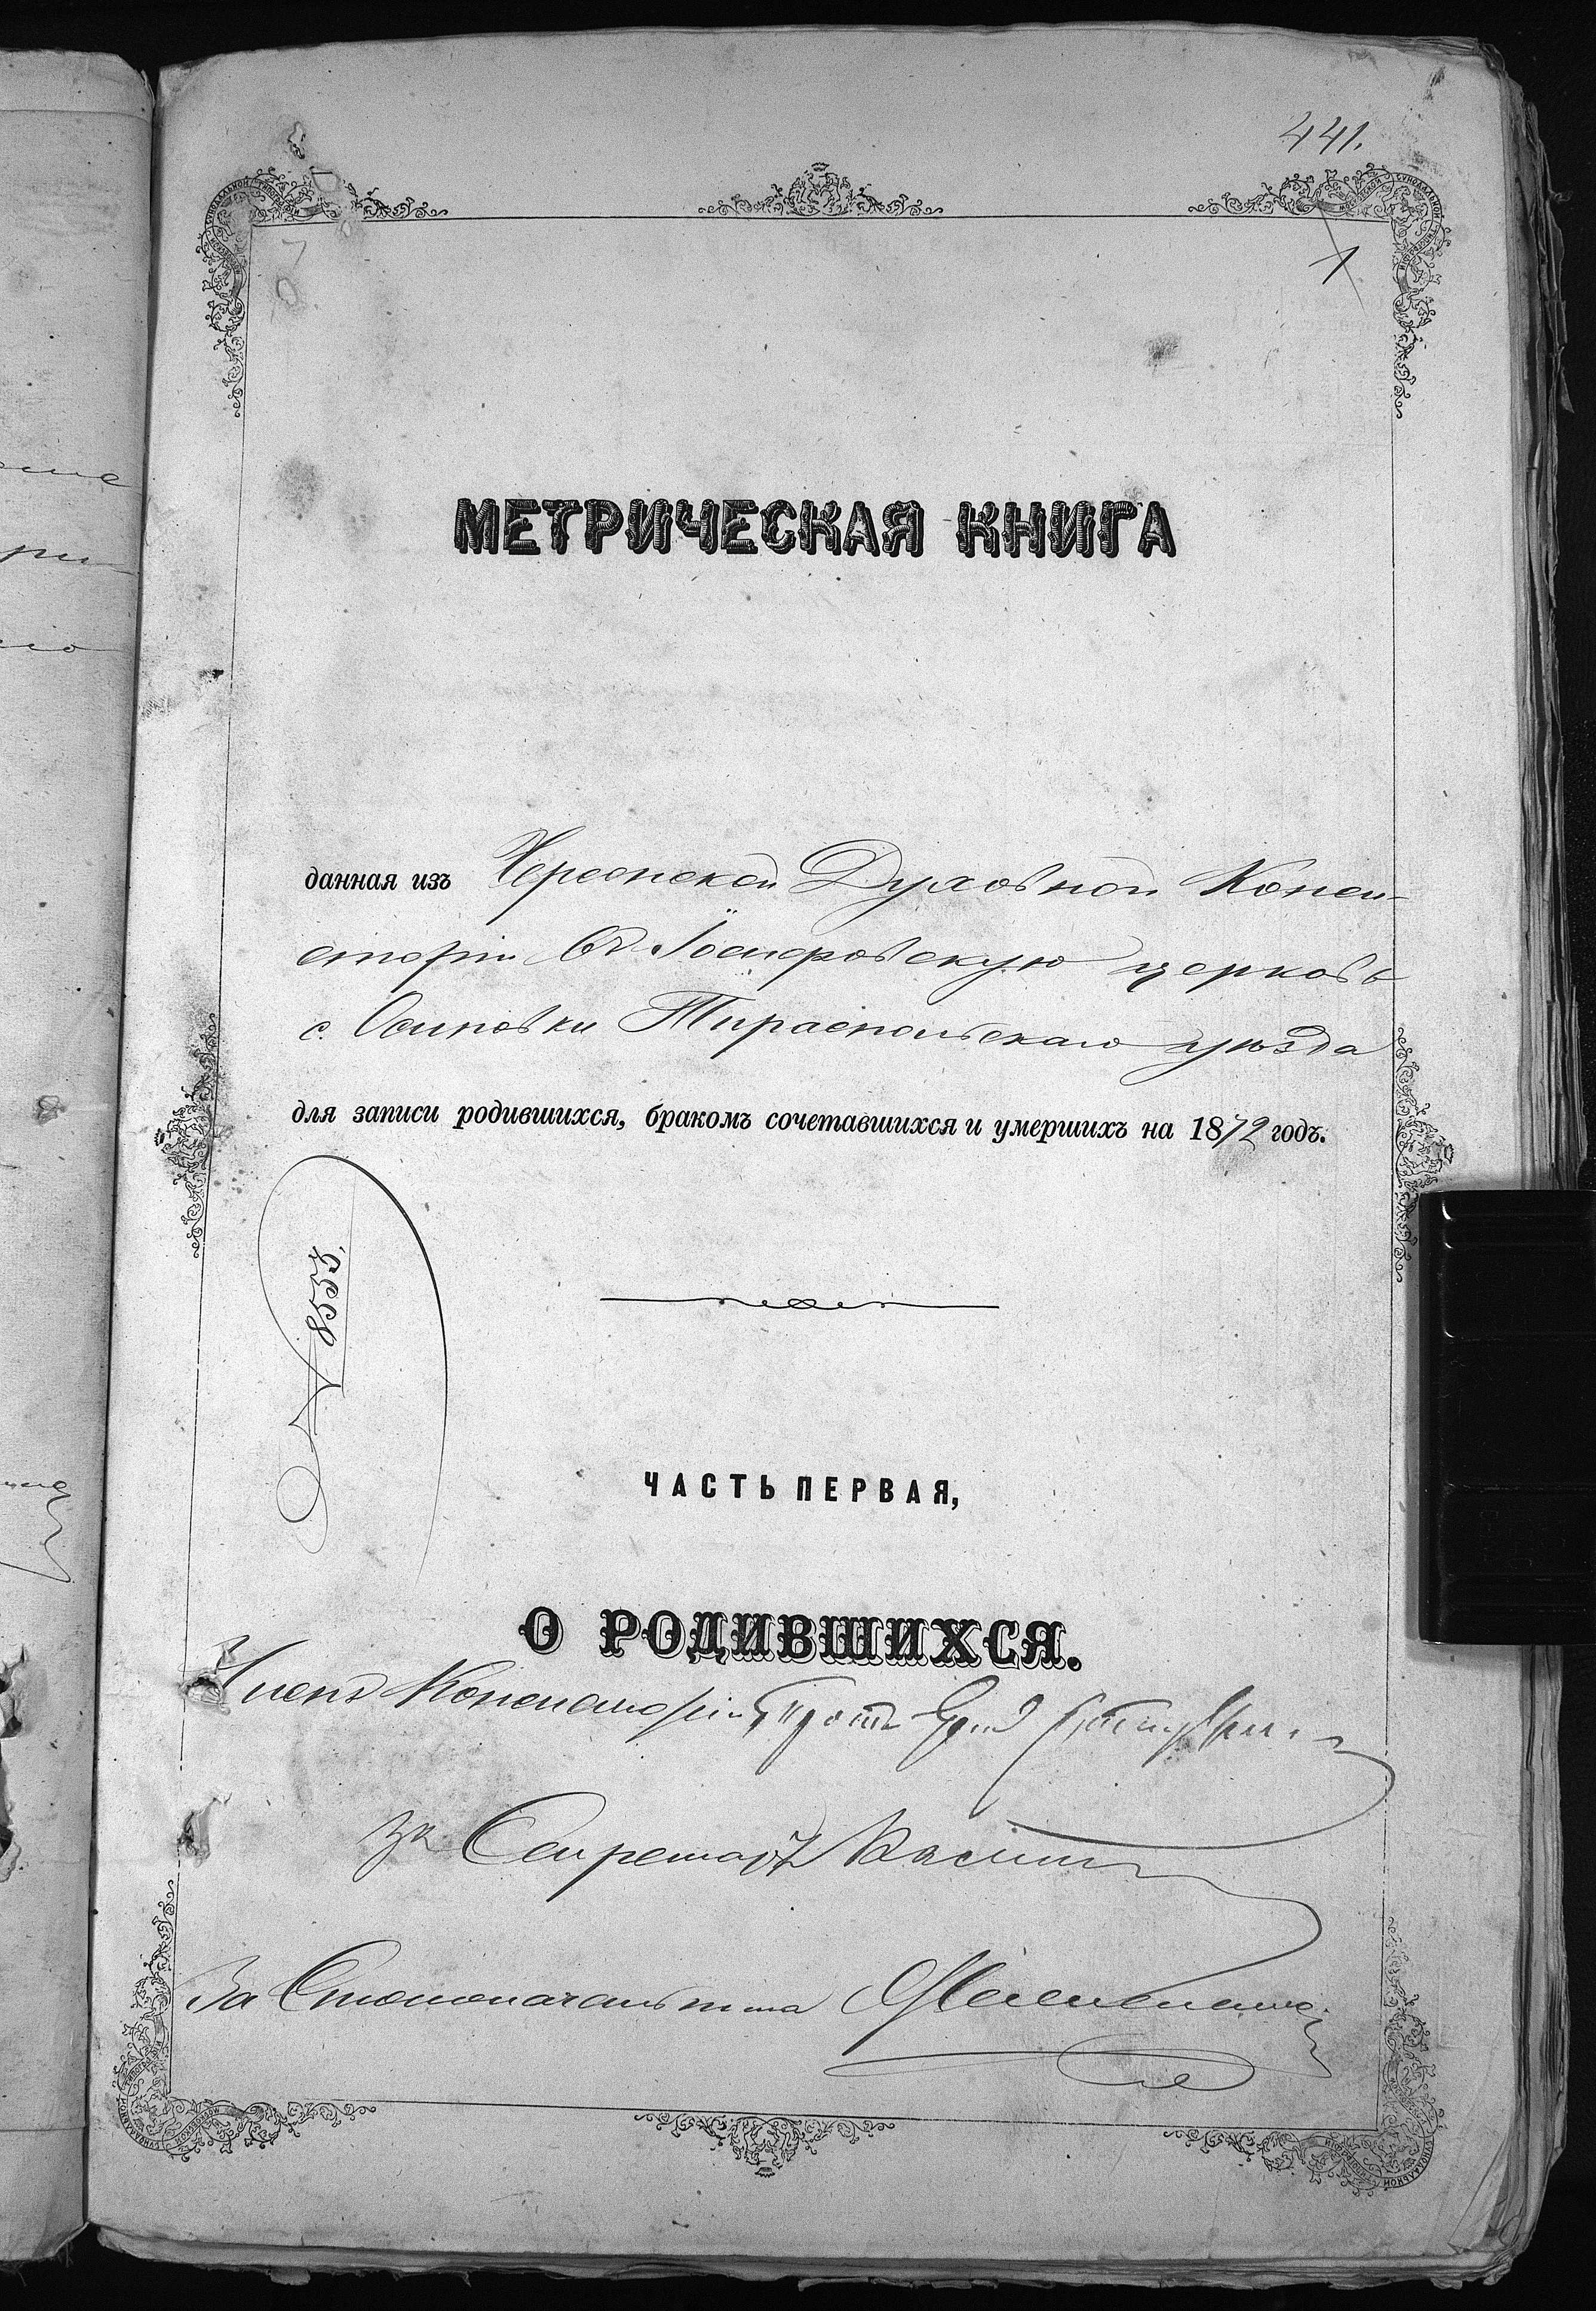 441.
1
МЕТРИЧЕСКАЯ КНИГА
данная изъ Херсонской Духовной Конси-
сторіи въ Іосифовскую церковь
с. Осиповки Тираспольскаго уѣзда
для записи родившихся, бракомъ сочетавшихся и умершихъ на 1872 годъ.
ЧАСТЬ ПЕРВАЯ,
О РОДИВШИХСЯ.
Членъ Консисторіи Прот.
За Секретаря
За Столоначальника